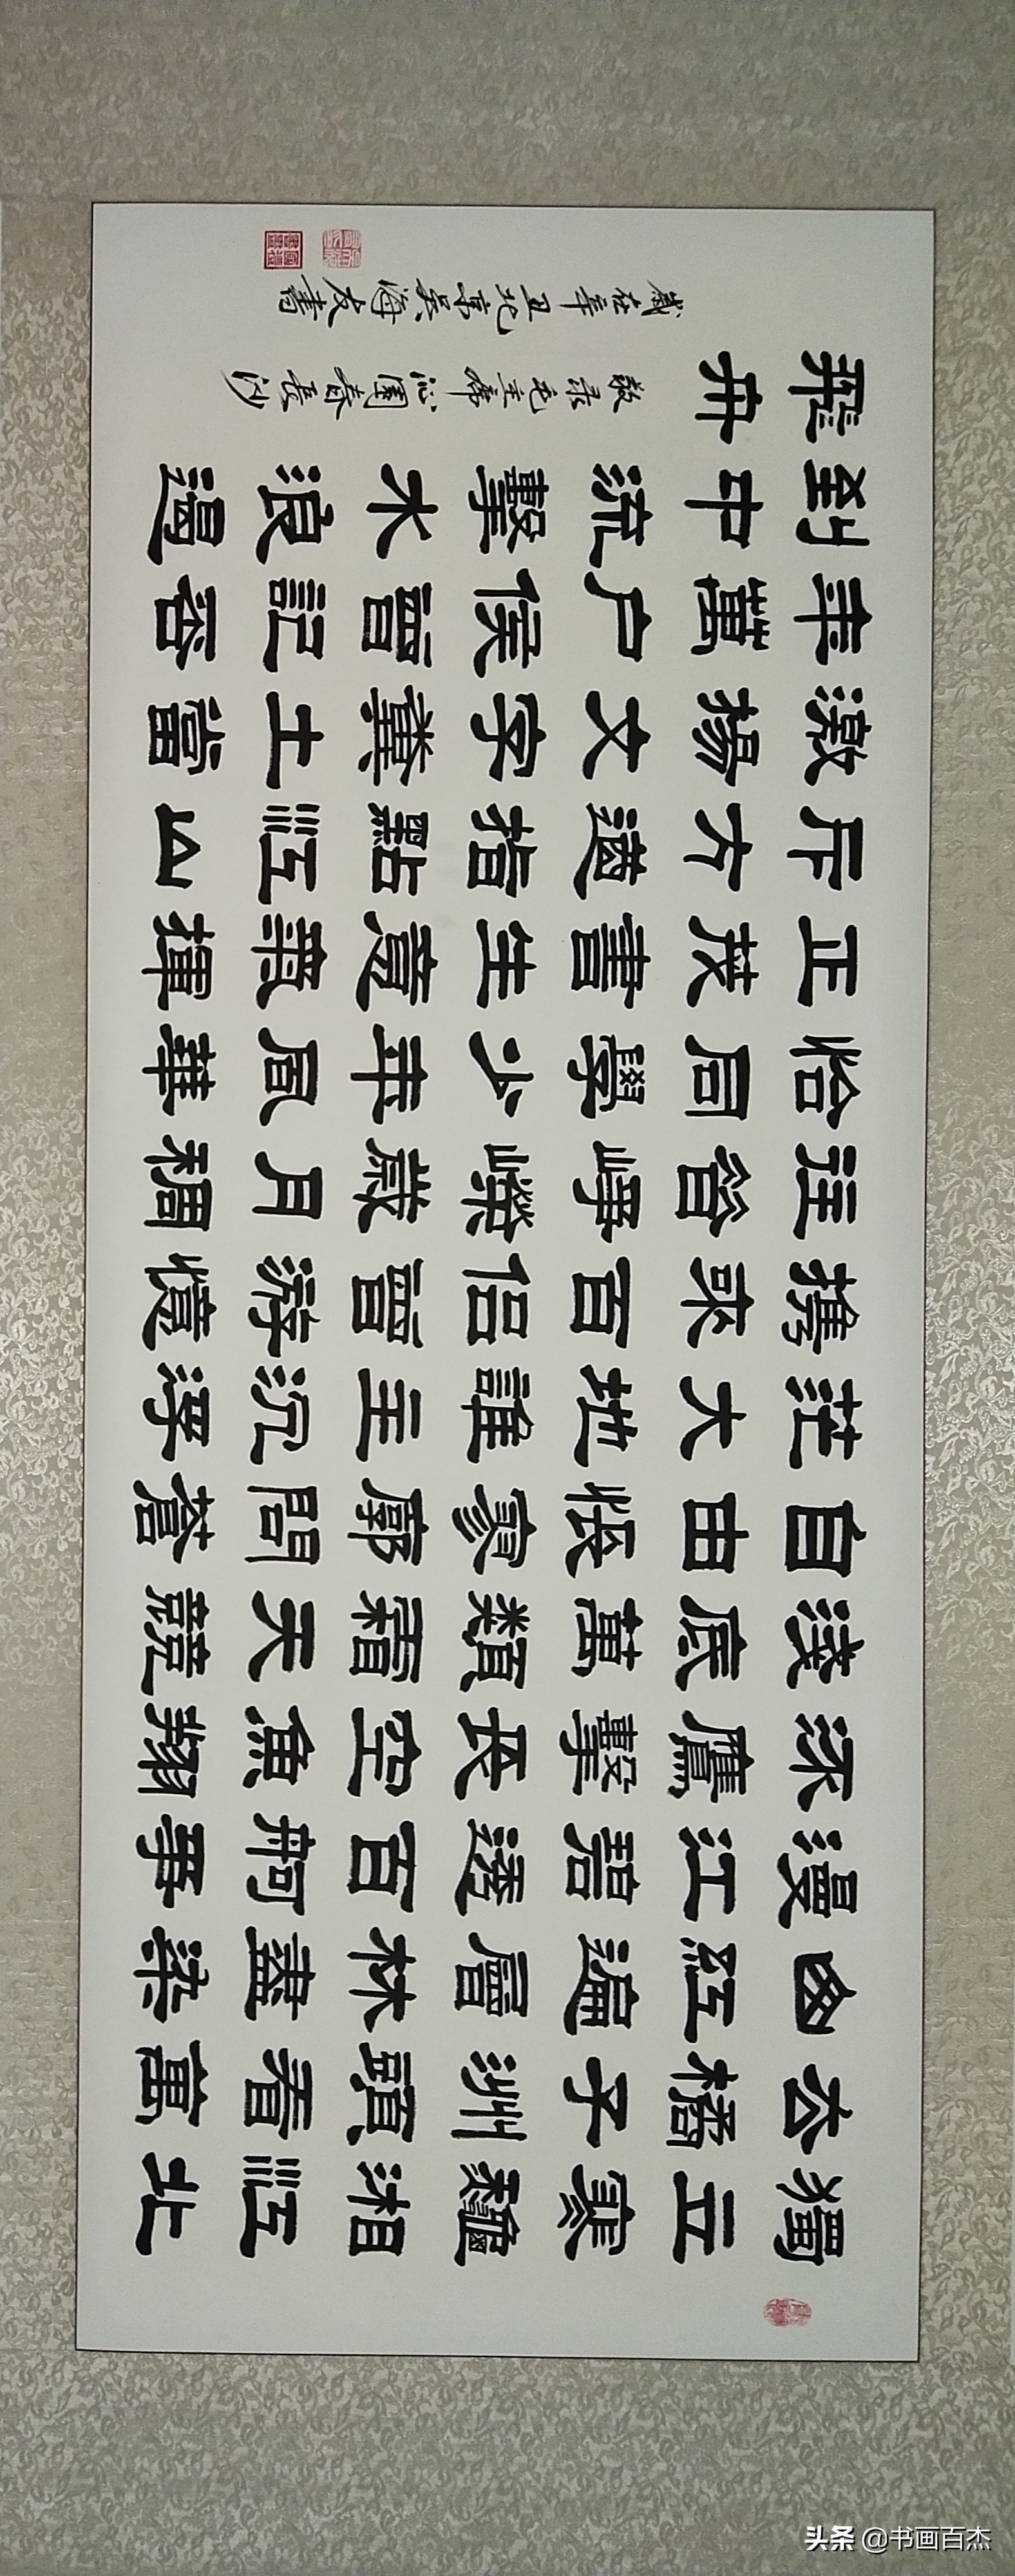 獨立寒龝湘江北
去橘子洲頭看萬
山紅遍層林盡染
漫江碧透百舸爭
流鷹擊長空魚翔
淺底萬類霜天競
自由悵寥廓問蒼
茫大地誰主沉浮
攜來百侶曾游憶
往昔崢嶸歲月稠
恰同學少年風華
正茂書生意氣揮
斥方遒指點江山
激揚文字糞土當
年萬户侯曾記否
到中流擊水浪遏
飛舟
敬录毛主席沁園春長沙
歲在辛丑北京吴海友書
头条 @书画百杰